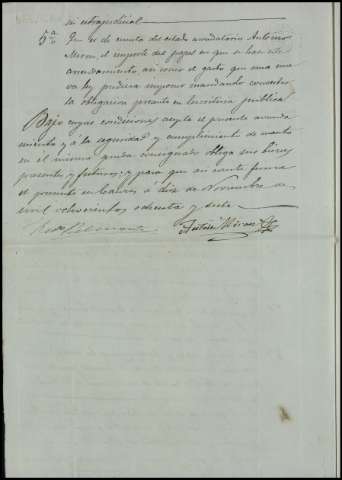 ni extrajudicial
5ª Que es de cuenta del citado arrendatario Antonio
Miran, el importe del papel en que se hace este
arrendamiento, asi como el gasto que una nue
va ley pudiera imponer mandando convertir
la obligacion presente en Escritura publica
Bajo cuyas condiciones acepta el presente arrenda
miento y á la seguridad y cumplimiento de cuanto
en el mismo queda consignado obliga sus bienes
presentes y futuros; y para que asi conste firma
el presente en á diez de Noviembre de
mil ochocientos ochenta y
Antonio Miran